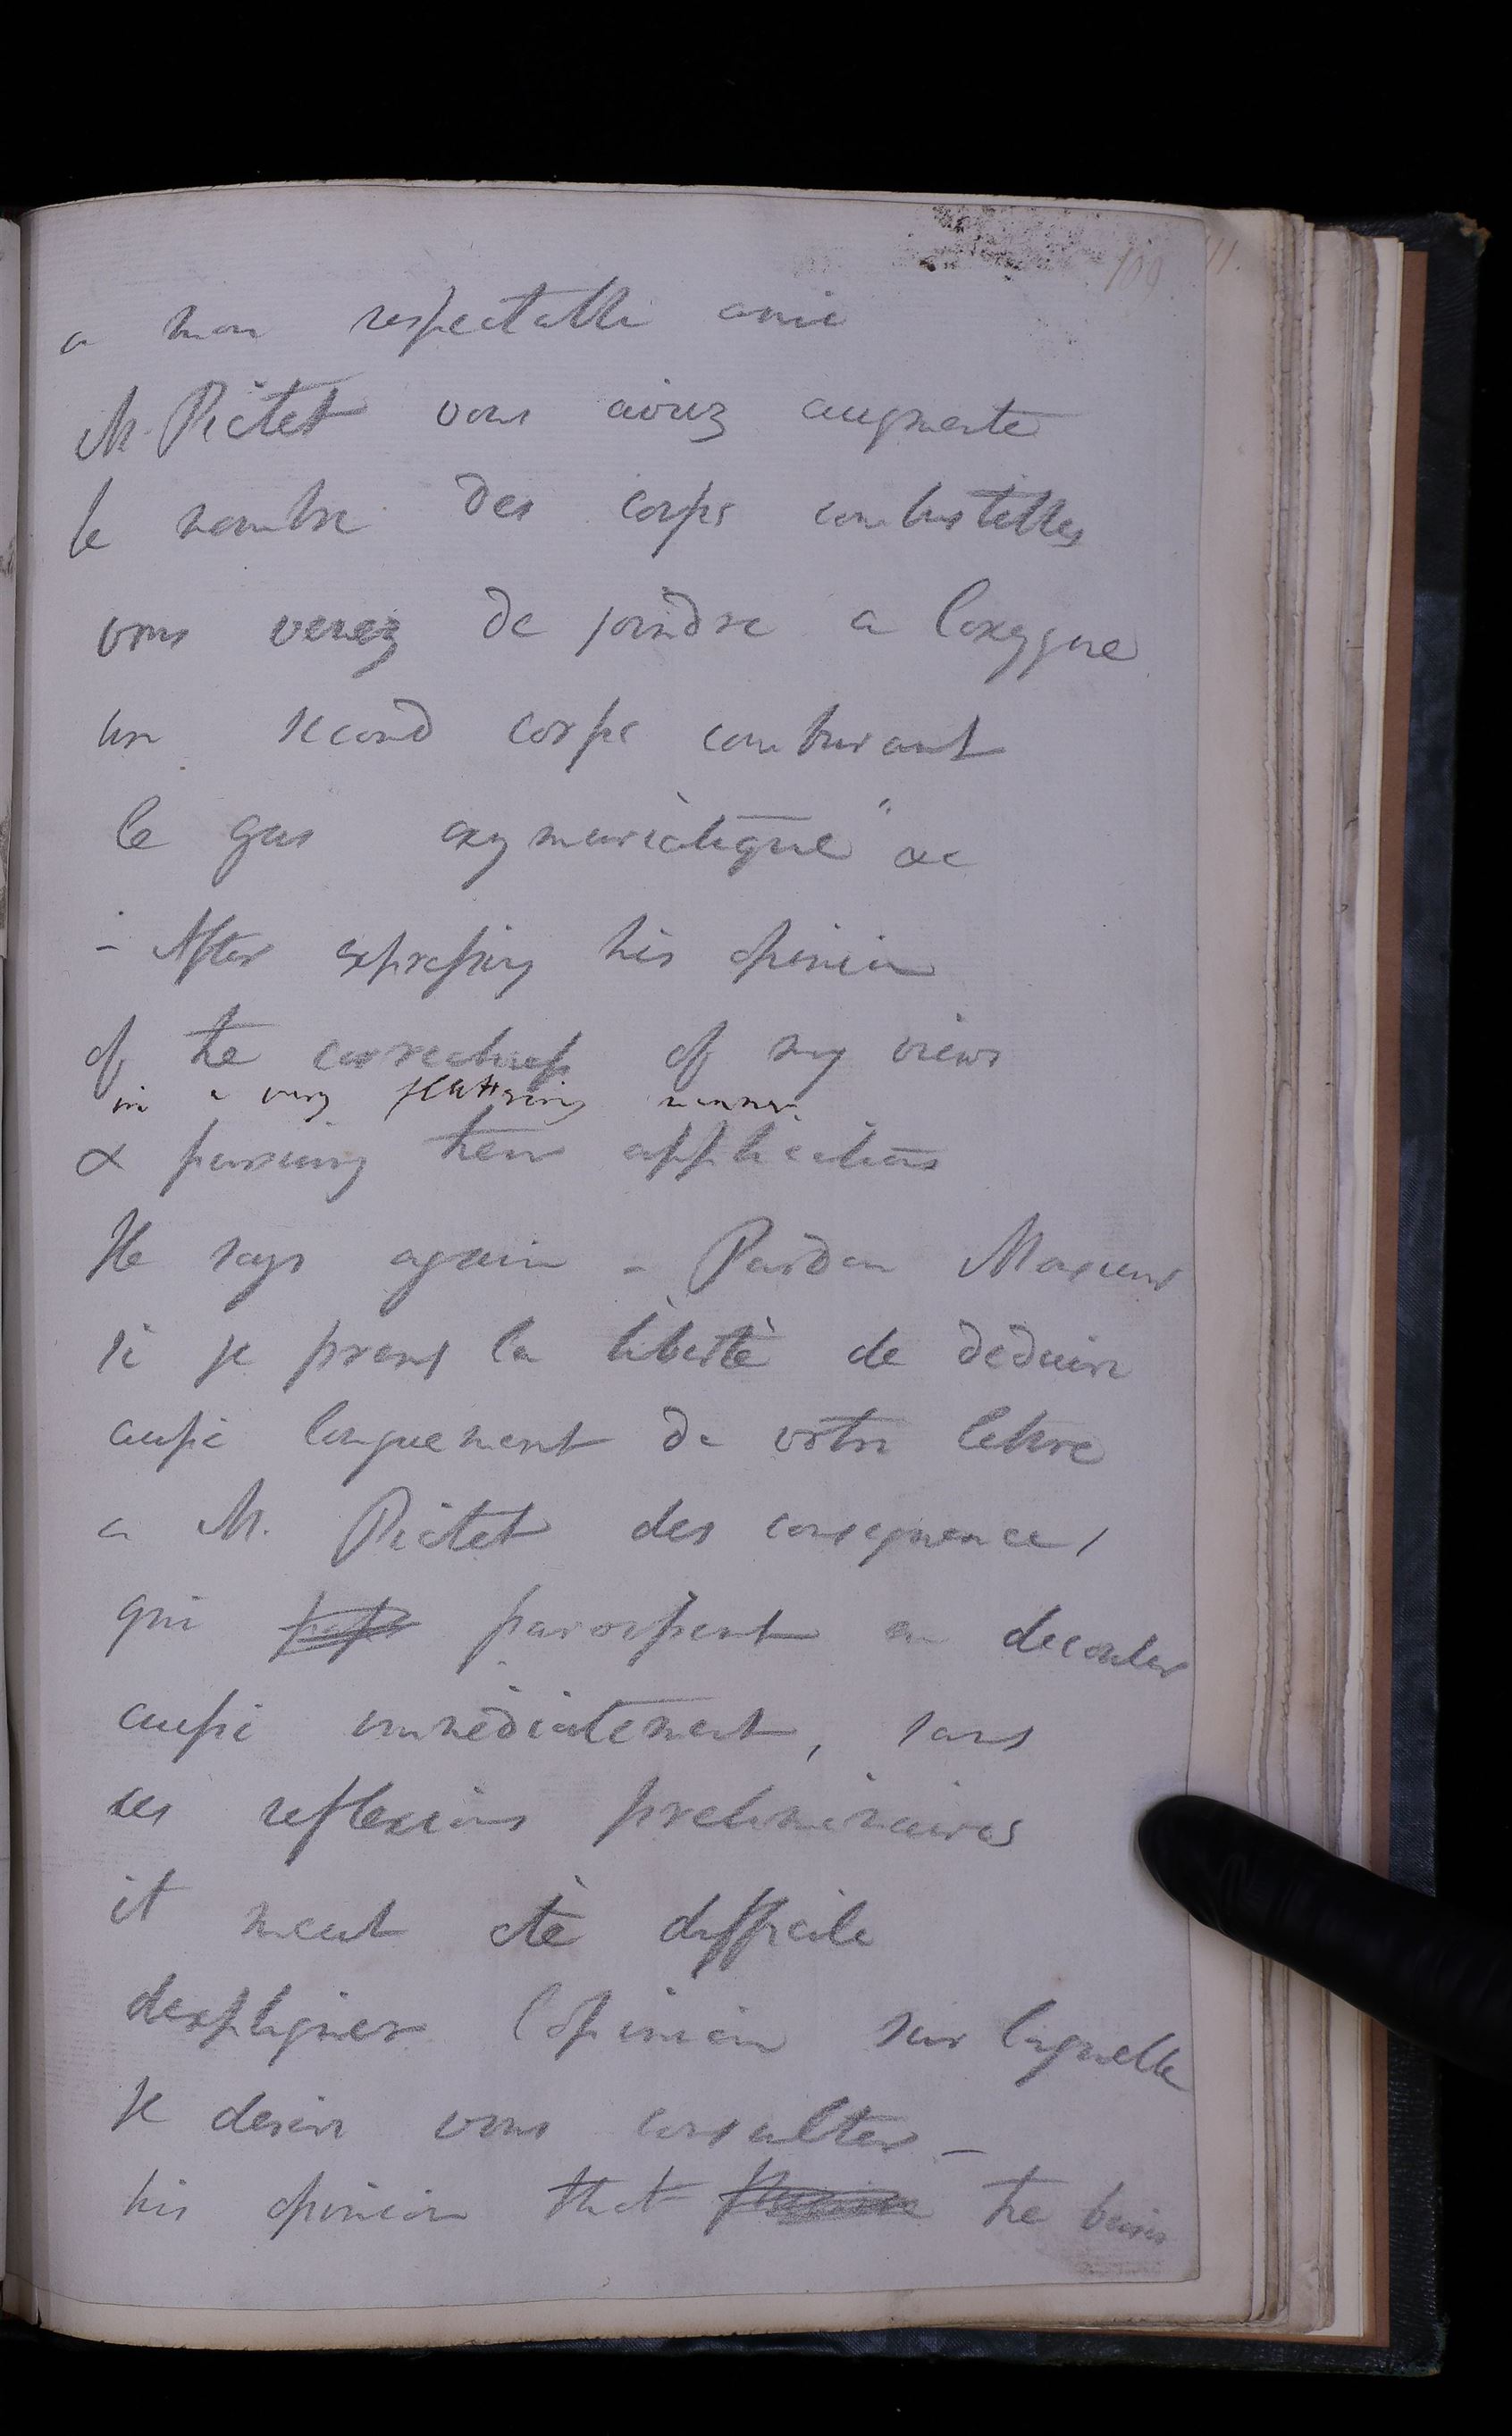 109
11.
a mon respectable ami
M. Pictet vous aviez augmente
le nombre des corps combustibles
vous venez de joindre a loxygne
un second corps comburant
le gas oxymuriatique" &c
- After expressing his opinion
of the correctness of my views
in a very flattering manner.
& pursuing their applications
He says again - Pardon Monsieur
si je prens la libertè de deduire
aussi longuement de votre lettre
a M. Pictet des consequences
qui paroissent en decouler
aussi immediatement, sans
ces reflexions preliminaires
it meut etè difficile
dexpliquer l'opinion sur laquelle
Je desire vous consulter -
his opinion that the basis